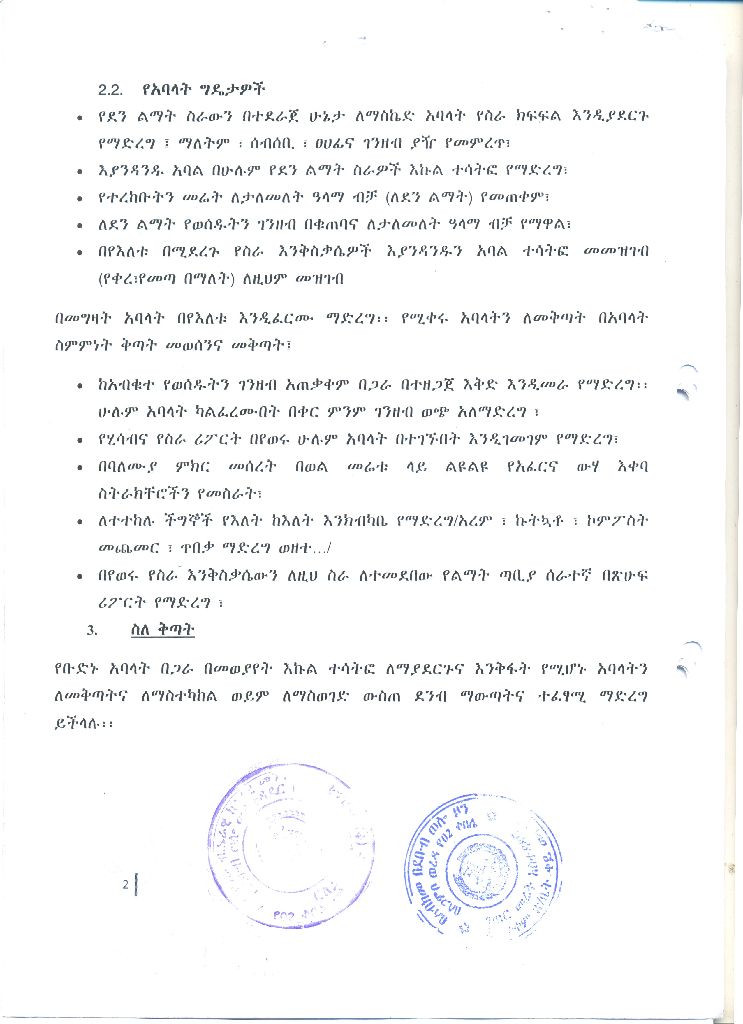 2.2. የአባላት ግዴታዎች
• የደን ልማት ስራውን በተደራጀ ሁኔታ ለማስኬድ አባላት የስራ ክፍፍል እንዲያደርጉ
የማድረግ ፣ ማለትም ፡ ሰብሰቢ ፡ ፀሀፊና ገንዘብ ያዥ የመምረጥ፣
• እያንዳንዱ አባል በሁሉም የደን ልማት ስራዎች እኩል ተሳትፎ የማድረግ፣
• የተረከቡትን መሬት ለታለመለት ዓላማ ብቻ (ለደን ልማት) የመጠቀም፣
• ለደን ልማት የወሰዱትን ገንዘብ በቁጠባና ለታለመለት ዓላማ ብቻ የማዋል፣
• በየእለቱ በሚደረጉ የስራ እንቅስቃሴዎች እያንዳንዱን አባል ተሳትፎ መመዝገብ
(የቀረ፣የመጣ በማለት) ለዚህም መዝገብ
በመግዛት አባላት በየእለቱ እንዲፈርሙ ማድረግ፡፡ የሚቀሩ አባላትን ለመቅጣት በአባላት
ስምምነት ቅጣት መወሰንና መቅጣት፣
• ከአብቁተ የወሰዱትን ገንዘብ አጠቃቀም በጋራ በተዘጋጀ እቅድ እንዲመራ የማድረግ፡፡
ሁሉም አባላት ካልፈረሙበት በቀር ምንም ገንዘብ ወጭ አለማድረግ ፣
• የሂሳብና የስራ ሪፖርት በየወሩ ሁሉም አባላት በተገኙበት እንዲገመገም የማድረግ፣
• በባለሙያ ምክር መሰረት በወል መሬቱ ላይ ልዩልዩ የአፈርና ውሃ እቀባ
ስትራክቸሮችን የመስራት፣
• ለተተከሉ ችግኞች የእለት ከእለት እንክብካቤ የማድረግ/አረም ፣ ኩትኳቶ ፣ ኮምፖስት
መጨመር ፣ ጥበቃ ማድረግ ወዘተ.../
• በየወሩ የስራ እንቅስቃሴውን ለዚህ ስራ ለተመደበው የልማት ጣቢያ ሰራተኛ በጽሁፍ
ሪፖርት የማድረግ ፣
3. ስለ ቅጣት
የቡድኑ አባላት በጋራ በመወያየት እኩል ተሳትፎ ለማያደርጉና እንቅፋት የሚሆኑ አባላትን
ለመቅጣትና ለማስተካከል ወይም ለማስወገድ ውስጠ ደንብ ማውጣትና ተፈፃሚ ማድረግ
ይችላሉ፡፡
2